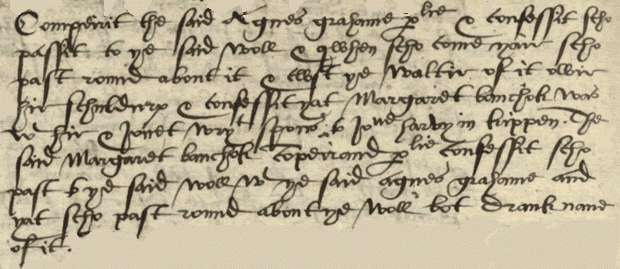 Comperit the said Agnes grahame p lie & confessit scho
passit to ye said woll & quhen scho come nair scho
past round about it & cwst ye Waltir of it owir
hir schulderis & confessit yat Margaret banchok was
wt hir & Jonet wryt spous to Jon harvy in kippen. The
said Margaret banchok Compeirand p lie confessit scho
past to ye said woll wt ye said agnes grahame and
yat scho past round about ye Woll bot drank nane
of it.